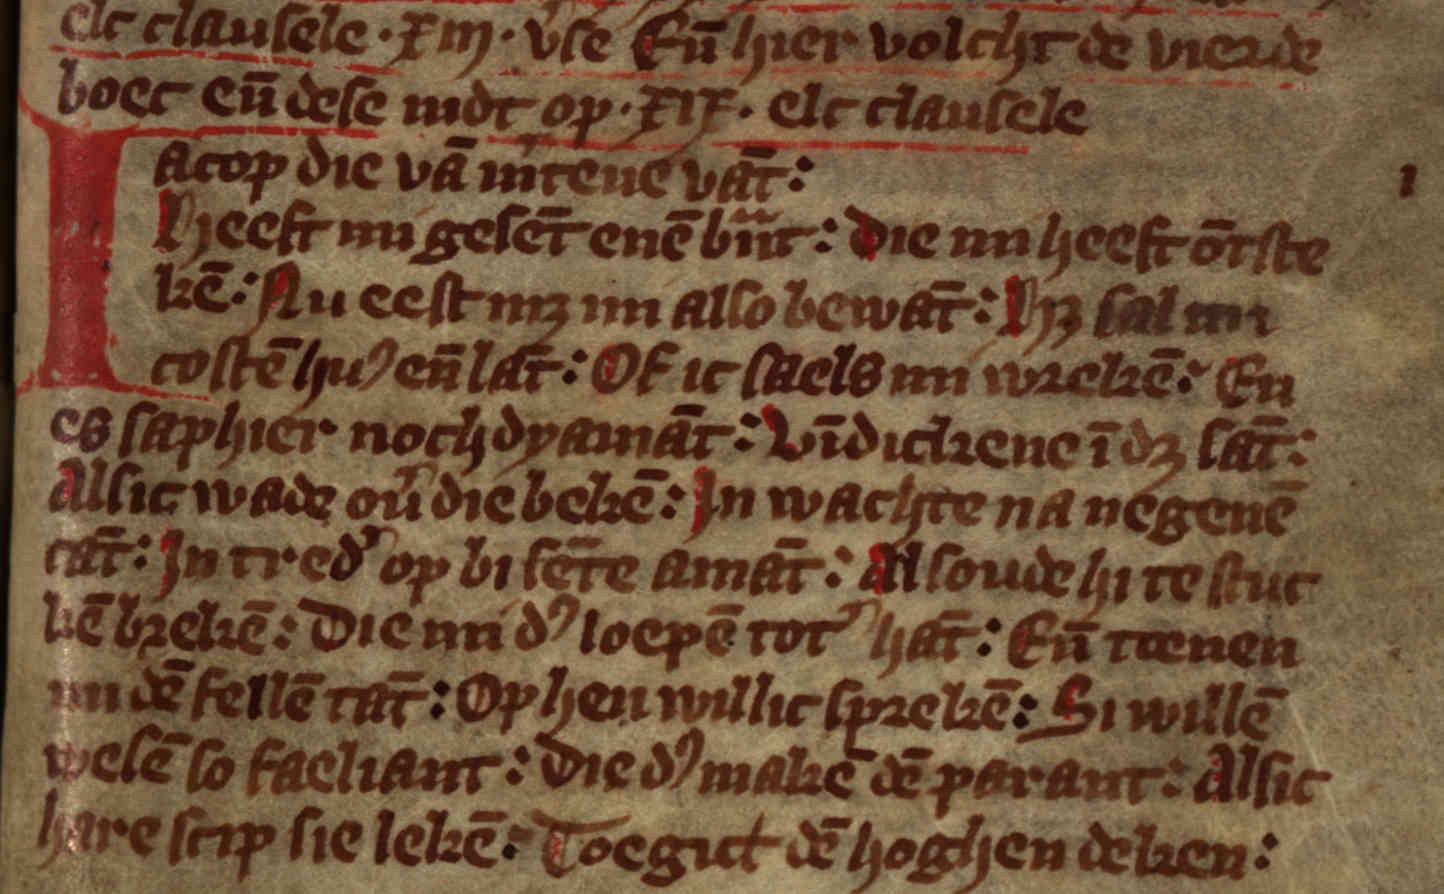 elc clausele · xiij · v͛se Eñ hier volcht de vierde
boec eñ dese rudt op · xix · elc clausele
Iacop die vā m͛reue vāt : 1
Heeft mi gesēt enē b͛nt : Die mi heeft ōtste
kē : Nu eest mʒ mi also bewāt : Hʒ sal mi
costē huꝰ eñ lāt : Of ic saels mi wrekē : En
es saphier noch dyamāt : Vīdickene ī dʒ sāt :
Alsic wade ou͛ die bekē : In wachte na negenē
tāt : In tred͛ op bi sēte amāt : Al soude hi te stuc
kē brekē : Die mi dꝰ loepē tot͛ hāt : Eñ toenen
mi dē fellē tāt : Op hen willic sprekē : Si willē
wesē so faeliant : Die dꝰ makē dē parant : Alsic
hare scip sie lekē : Toegict dē hoghen deken :